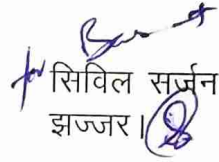 for सिविल सर्जन
झज्जर।